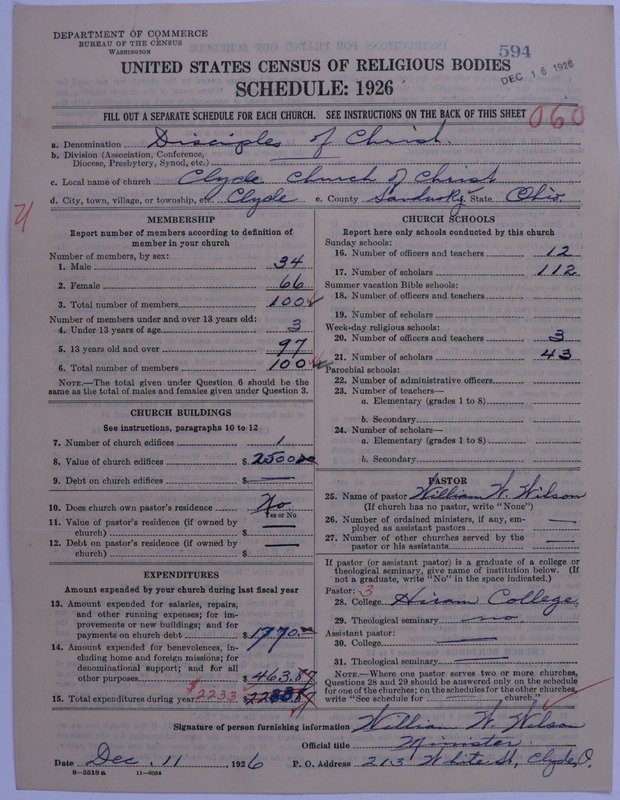 DEPARTMENT OF COMMERCE
BUREAU OF THE CENSUS
WASHINGTON
594
DEC 16 1926
UNITED STATES CENSUS OF RELIGIOUS BODIES
SCHEDULE: 1926
FILL OUT A SEPARATE SCHEDULE FOR EACH CHURCH. SEE INSTRUCTIONS ON THE BACK OF THIS SHEET
060
a. Denomination Disciples of Christ.
b. Division (Association, Conference,
Diocese, Presbytery, Synod, etc.)
c. Local name of church Clyde Church of Christ
d. City, town, village, or township, etc. Clyde e. County Sandusky State Ohio.
MEMBERSHIP
Report number of members according to definition of
member in your church
Number of members, by sex:
1. Male 34
2. Female 66
3. Total number of members 100
Number of members under and over 13 years old:
4. Under 13 years of age 3
5. 13 years old and over 97
6. Total number of members 100
NOTE.—The total given under Question 6 should be the
same as the total of males and females given under Question 3.
CHURCH BUILDINGS
See instructions, paragraphs 10 to 12
7. Number of church edifices 1
8. Value of church edifices $ 2500 00
9. Debt on church edifices $
10. Does church own pastor's residence No
Yes or No
11. Value of pastor's residence (if owned by
church) $
12. Debt on pastor's residence (if owned by
church) $
EXPENDITURES
Amount expended by your church during last fiscal year
13. Amount expended for salaries, repairs,
and other running expenses; for im-
provements or new buildings; and for
payments on church debt $ 1770.00
14. Amount expended for benevolences, in-
cluding home and foreign missions; for
denominational support; and for all
other purposes $ 463.87
15. Total expenditures during year $2233 $
CHURCH SCHOOLS
Report here only schools conducted by this church
Sunday schools:
16. Number of officers and teachers 12
17. Number of scholars 112
Summer vacation Bible schools:
18. Number of officers and teachers
19. Number of scholars
Week-day religious schools:
20. Number of officers and teachers 3
21. Number of scholars 43
Parochial schools:
22. Number of administrative officers
23. Number of teachers—
a. Elementary (grades 1 to 8)
b. Secondary
24. Number of scholars—
a. Elementary (grades 1 to 8)
b. Secondary
PASTOR
25. Name of pastor William W. Wilson
(If church has no pastor, write "None")
26. Number of ordained ministers, if any, em-
ployed as assistant pastors
27. Number of other churches served by the
pastor or his assistants
If pastor (or assistant pastor) is a graduate of a college or
theological seminary, give name of institution below. (If
not a graduate, write "No" in the space indicated.)
Pastor: 3
28. College Hiram College
29. Theological seminary no
Assistant pastor:
30. College
31. Theological seminary
NOTE.—Where one pastor serves two or more churches,
Questions 28 and 29 should be answered only on the schedule
for one of the churches; on the schedules for the other churches,
write "See schedule for church."
Signature of person furnishing information William W. Wilson
Official title Minister
Date Dec, 11, 1926 P. O. Address 213 White St., Clyde, O.
8—5518a 11—9054